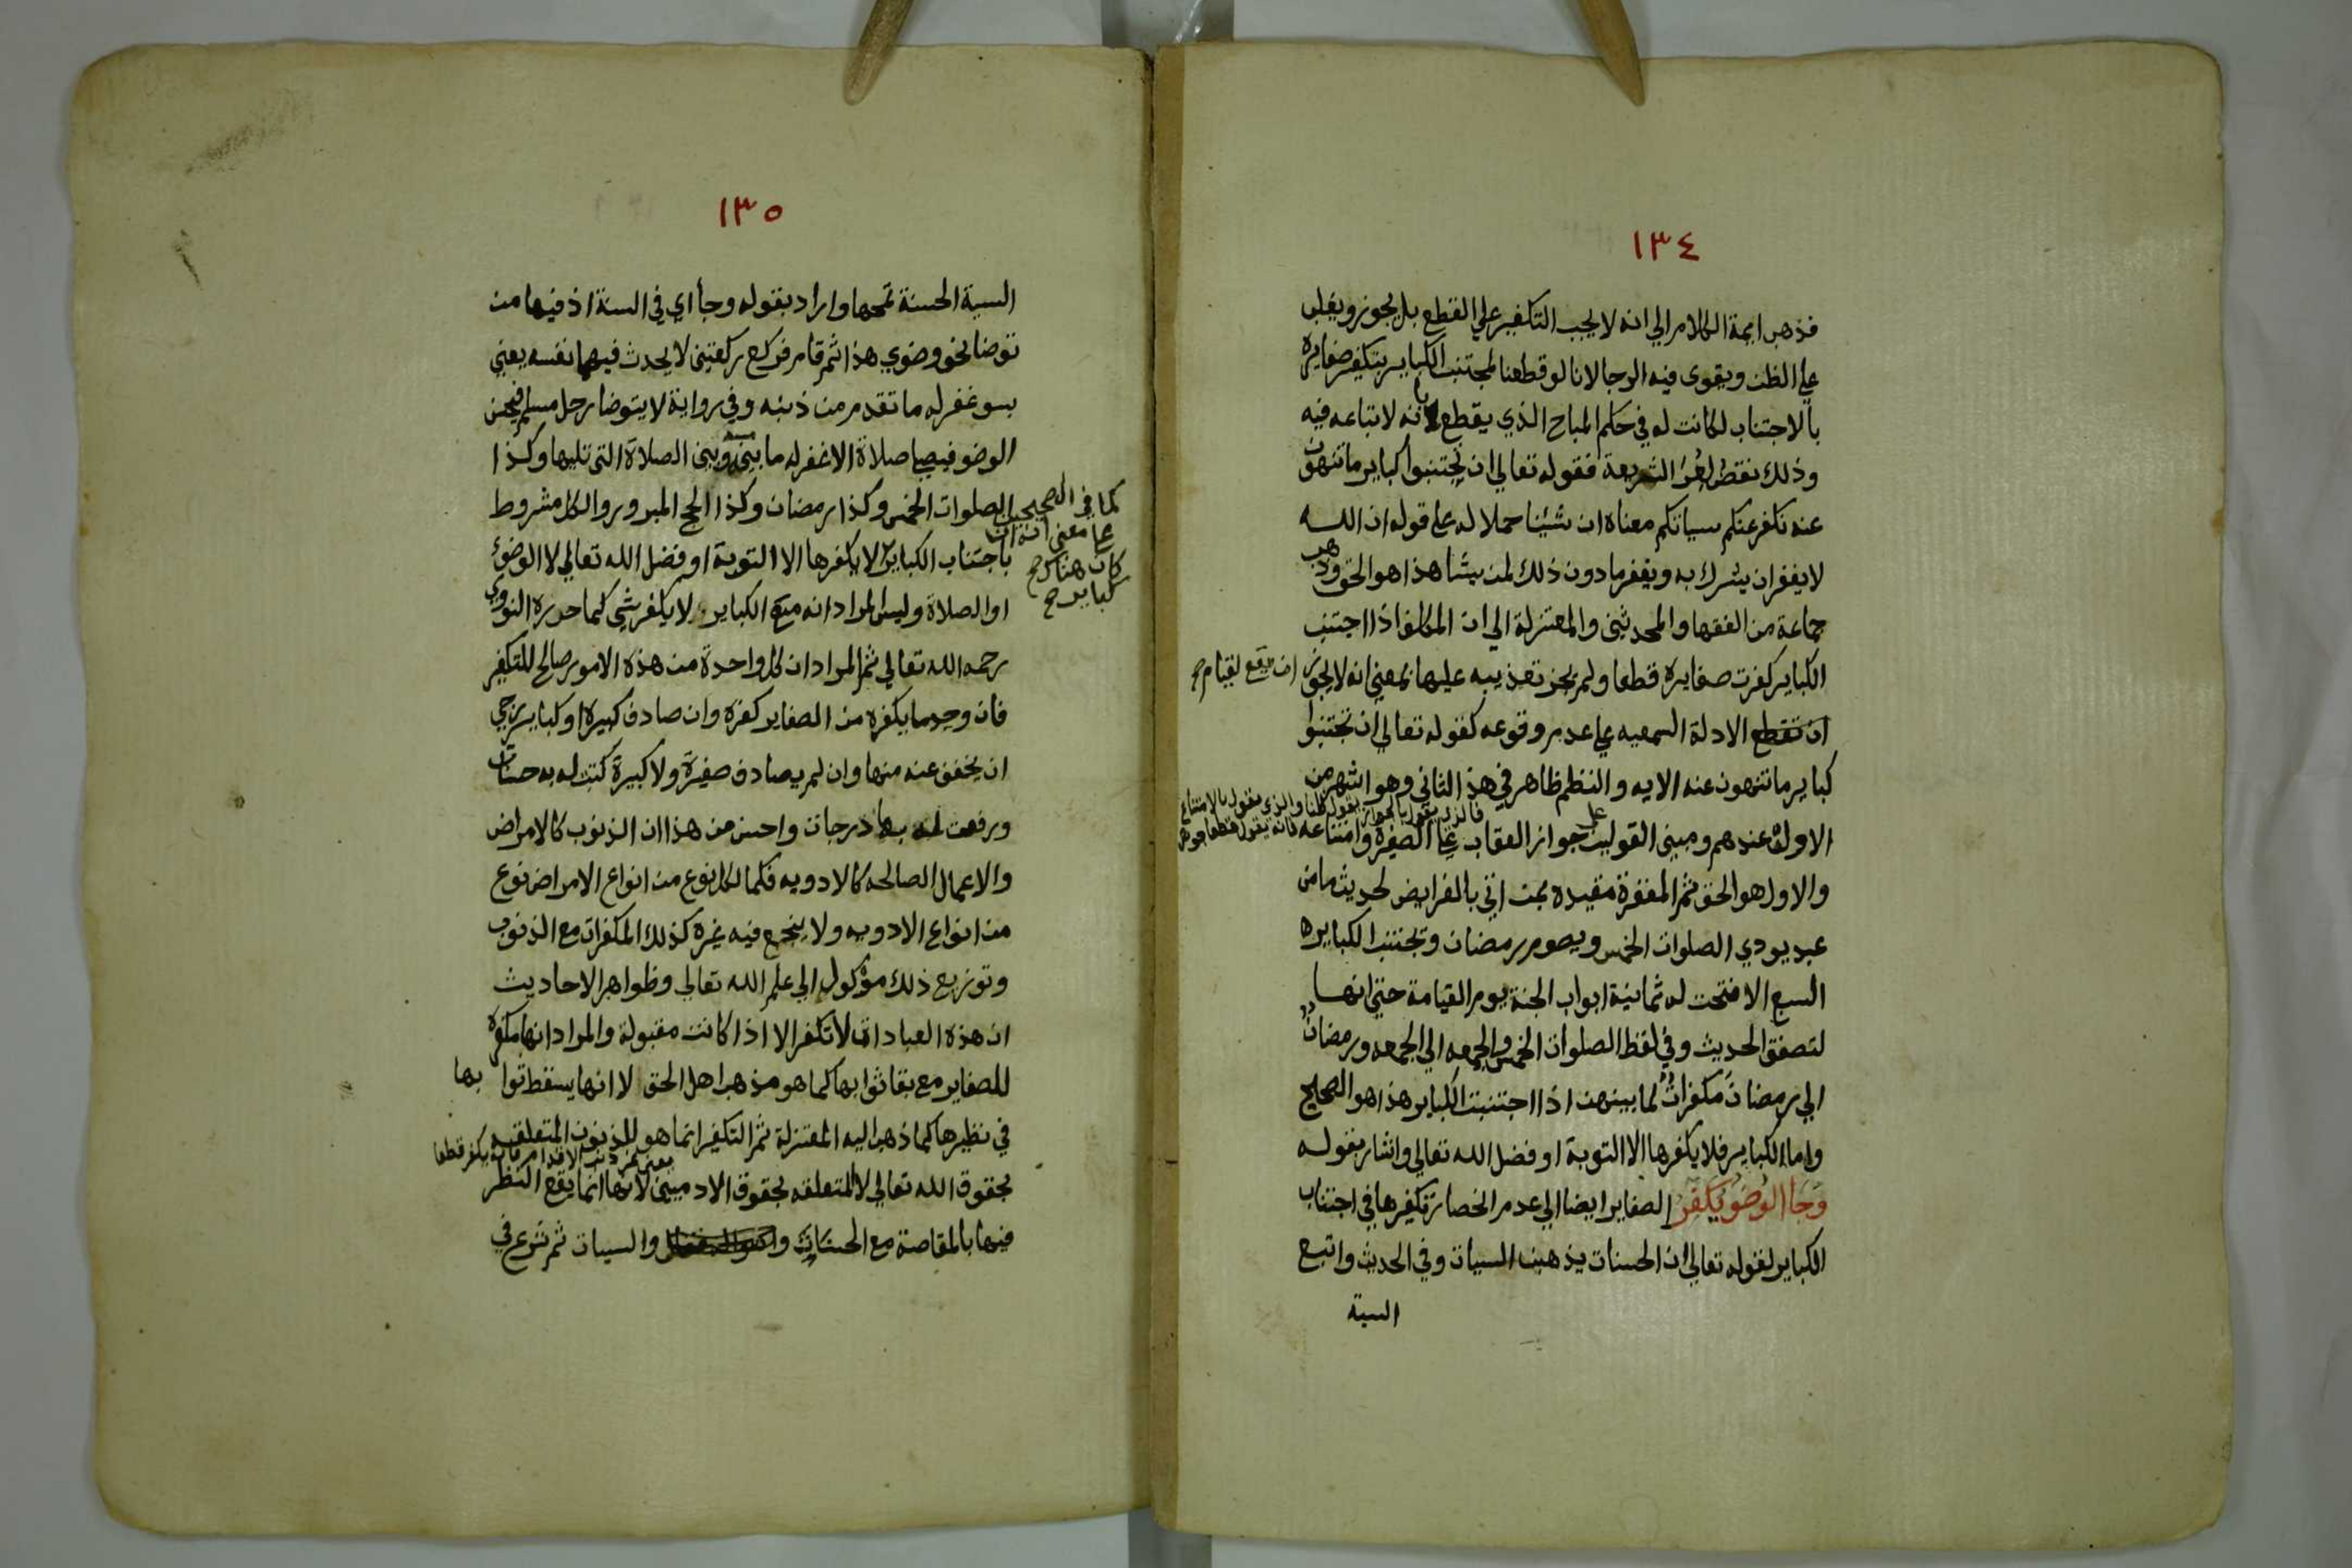 ١٣٤
فذهب ايمة الكلام الي انه لا يجب التكفير علي القطع بل يجوز ويغلب
علي الظن ويقوى فيه الرجا لانا لو قطعنا لمجتنب الكباير بتكفير صغايره
بالاجتناب لكانت له في حكم المباح الذي يقطع بانه لا تباعه فيه
وذلك نقض لعرا الشريعة فقوله تعالي ان تجتنبوا كباير ما تنهون
عنه نكفر عنكم سياتكم معناه ان شئنا حملا له علي قوله ان الله
لا يغفر ان يشرك به ويغفر ما دون ذلك لمن يشا هذا هو الحق وذهب
جماعة من الفقها والمحدثين والمعتزلة الي ان المكلف اذا اجتنب
الكباير كفرت صغايره قطعا ولم يجز تعذيبه عليها بمعني انه لا يجوز ان يقع لقيام صح
ان تقطع الادلة السمعيه علي عدم وقوعه كقوله تعالي ان تجتنبوا
كباير ما تنهون عنه الايه والنظم ظاهر في هذا الثاني وهو اشهر من
فالذي يقول بالجواز يقول ظنا والذي يقول بالامتناع
الاول عندهم ومبني القولين علي جواز العقاب علي الصغيرة وامتناعه فانه يقول قطعا
والاول هو الحق ثم المغفرة مقيده بمن اتي بالفرايض لحديث ما من
عبد يودي الصلوات الخمس ويصوم رمضان وتجتنب الكباير
السبع الا فتحت له ثمانية ابواب الجنة يوم القيامة حتي انها
لتصفق الحديث وفي لفظ الصلوات الخمس والجمعه الي الجمعه ورمضان
الي رمضان مكفرات لما بينهن اذا اجتنبت الكباير هذا هو الصحيح
واما الكباير فلا يكفرها الا التوبة او فضل الله تعالي واشار بقوله
وجا الوضو يكفر الصغاير ايضا الي عدم انحصار تكفيرها في اجتناب
الكباير لقوله تعالي ان الحسنات يذهبن السيات وفي الحديث واتبع
السية
١٣٥
السية الحسنة تمحها واراد بقوله وجا اي في السنة اذ فيها من
توضا نحو وضوي هذا ثم قام فركع ركعتين لا يحدث فيهما نفسه يعني
بسو غفر له ما تقدم من ذنبه وفي رواية لا يتوضا رجل مسلم فيحسن
الوضو فيصلي صلاة الا غفر له ما بينه وبين الصلاة التي تليها وكذا
الصلوات الخمس وكذا رمضان وكذا الحج المبرور والكل مشروط
كما في الصحيحين
علي معني انه ان
كان هناك صح
كباير صح
باجتناب الكباير لا يكفرها الا التوبة او فضل الله تعالي لا الوضو
او الصلاة وليس المراد انه مع الكباير لا يكفر شي كما حرره النووي
رحمه الله تعالي ثم المراد ان كل واحدة من هذه الامور صالح للتكفير
فان وجد ما يكفره من الصغاير كفره وان صادف كبيرة او كباير رجي
ان يخفف عنه منها وان لم يصادف صغيرة ولا كبيرة كتبت له به حسنات
ورفعت له بها درجات واحسن من هذا ان الذنوب كالامراض
والاعمال الصالحه كالادويه فكما لكل نوع من انواع الامراض نوع
من انواع الادويه ولا ينجع فيه غيره كذلك المكفرات مع الذنوب
وتوزيع ذلك موكول الي علم الله تعالي وظواهر الاحاديث
ان هذه العبادات لا تكفر الا اذا كانت مقبولة والمراد انها مكفرة
للصغاير مع بقا ثوابها كما هو مذهب اهل الحق لا انها يسقط ثوابها
في نظيرها كما ذهب اليه المعتزلة ثم التكفير انما هو للذنوب المتعلقه
بحقوق الله تعالي لا المتعلقه بحقوق الادميين لانها انما يقع النظر
فيها بالمقاصة مع الحسنات والسيات ثم شرع في